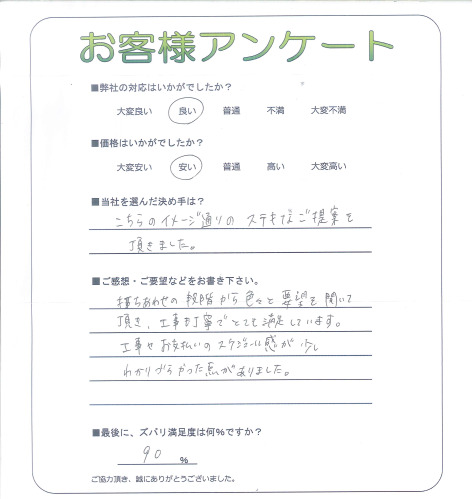 お客様アンケート
■弊社の対応はいかがでしたか?
大変良い 良い 普通 不満 大変不満
■価格はいかがでしたか?
大変安い 安い 普通 高い 大変高い
■当社を選んだ決め手は?
こちらのイメージ通りの ステキなご提案を
頂きました。
■ご感想・ご要望などをお書き下さい。
打ちあわせの段階から色々と要望を聞いて
頂き、工事も丁寧でとても満足しています。
工事やお支払いのスケジュール感が少し
わかりづらかった点がありました。
■最後に、ズバリ満足度は何%ですか?
90 %
ご協力頂き、誠にありがとうございました。